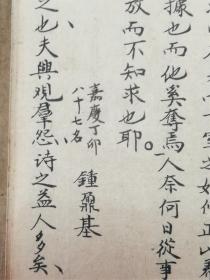 據也而他奚奪焉人奈何日從事
放而不知求也耶。
嘉慶丁卯
八十七名
鍾鼐基
之也夫興觀羣怨詩之益人多矣